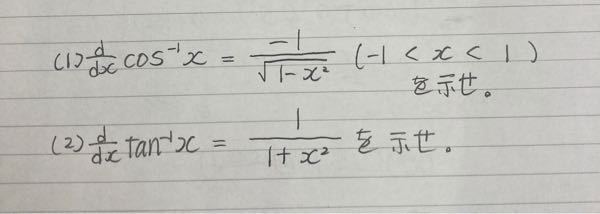 (1) d/dx cos⁻¹x = -1/√(1-x²) (-1 < x < 1)
を示せ。
(2) d/dx tan⁻¹x = 1/(1+x²) を示せ。